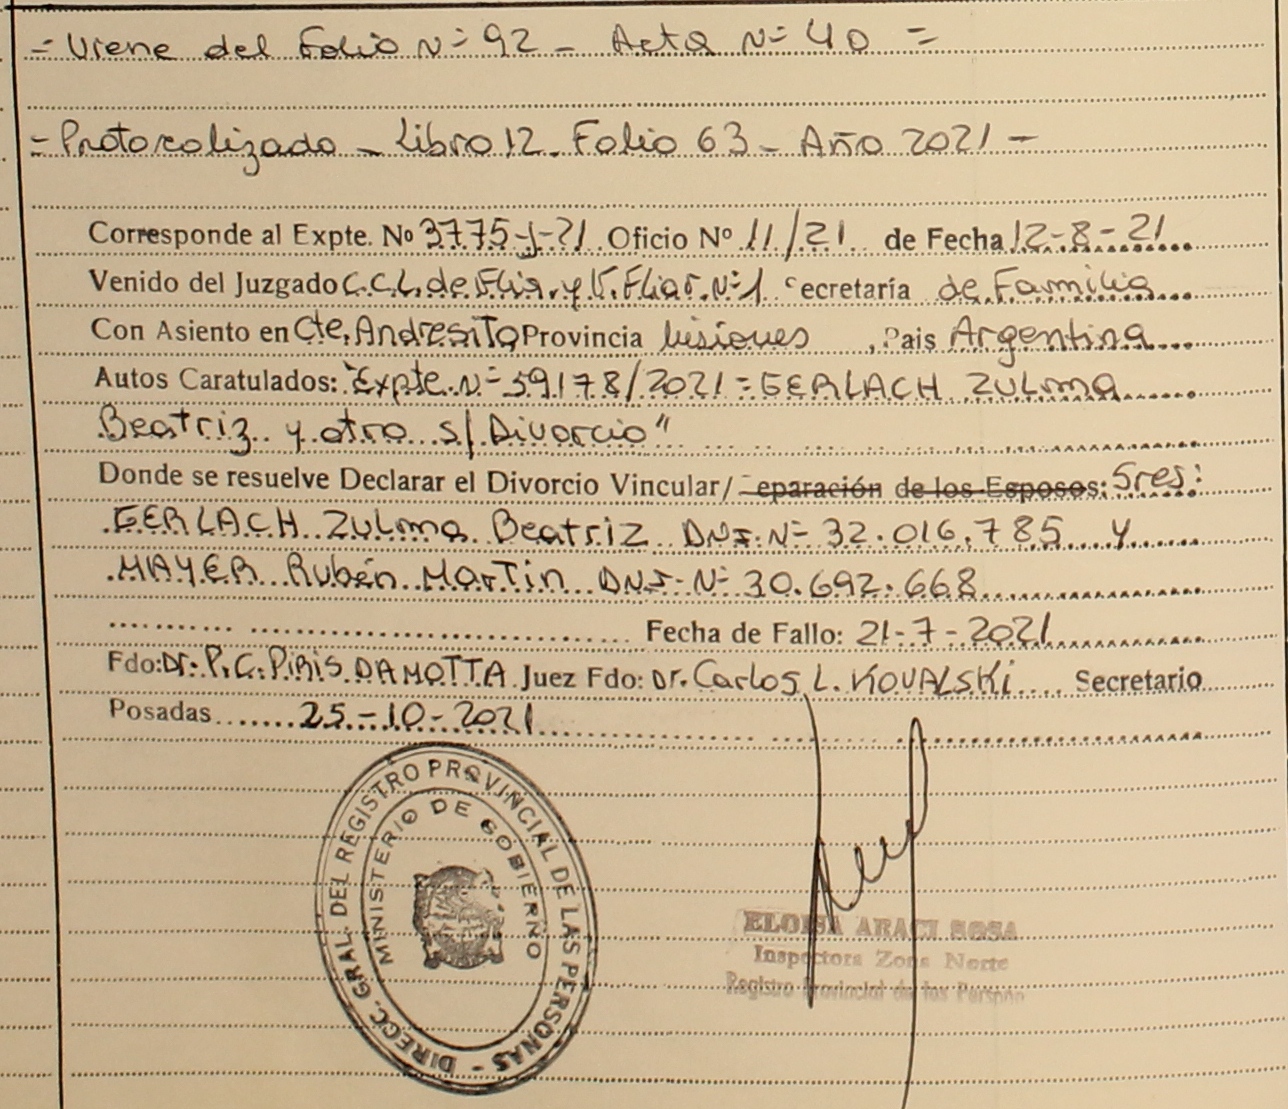 = Viene del Folio Nº 92 - Acta Nº 40 =
= Protocolizado - Libro 12 - Folio 63 - Año 2021 -
Corresponde al Expte. Nº 3775-J-21 Oficio Nº 11/21 de Fecha 12-8-21
Venido del Juzgado C.C.L. de Flia. y V. Fliar. Nº 1 ecretaría de Familia
Con Asiento en Cte. Andresito Provincia Misiones, Pais Argentina
Autos Caratulados: "Expte. Nº 59178/2021 = GERLACH Zulma
Beatriz y otro s/ Divorcio"
Donde se resuelve Declarar el Divorcio Vincular/ eparación de los Esposos: Sres:
GERLACH Zulma Beatriz DNI. Nº 32.016.785 y
MAYER Rubén Martin DNI. Nº 30.692.668
Fecha de Fallo: 21-7-2021
Fdo: Dr. P.C. PIRIS DA MOTTA Juez Fdo: Dr. Carlos L. KOVALSKI Secretario
Posadas 25-10-2021
DIRECC. GRAL. DEL REGISTRO PROVINCIAL DE LAS PERSONAS -
MINISTERIO DE GOBIERNO
ELOISA ARACI SOSA
Inspectora Zona Norte
Registro Provincial de las Person